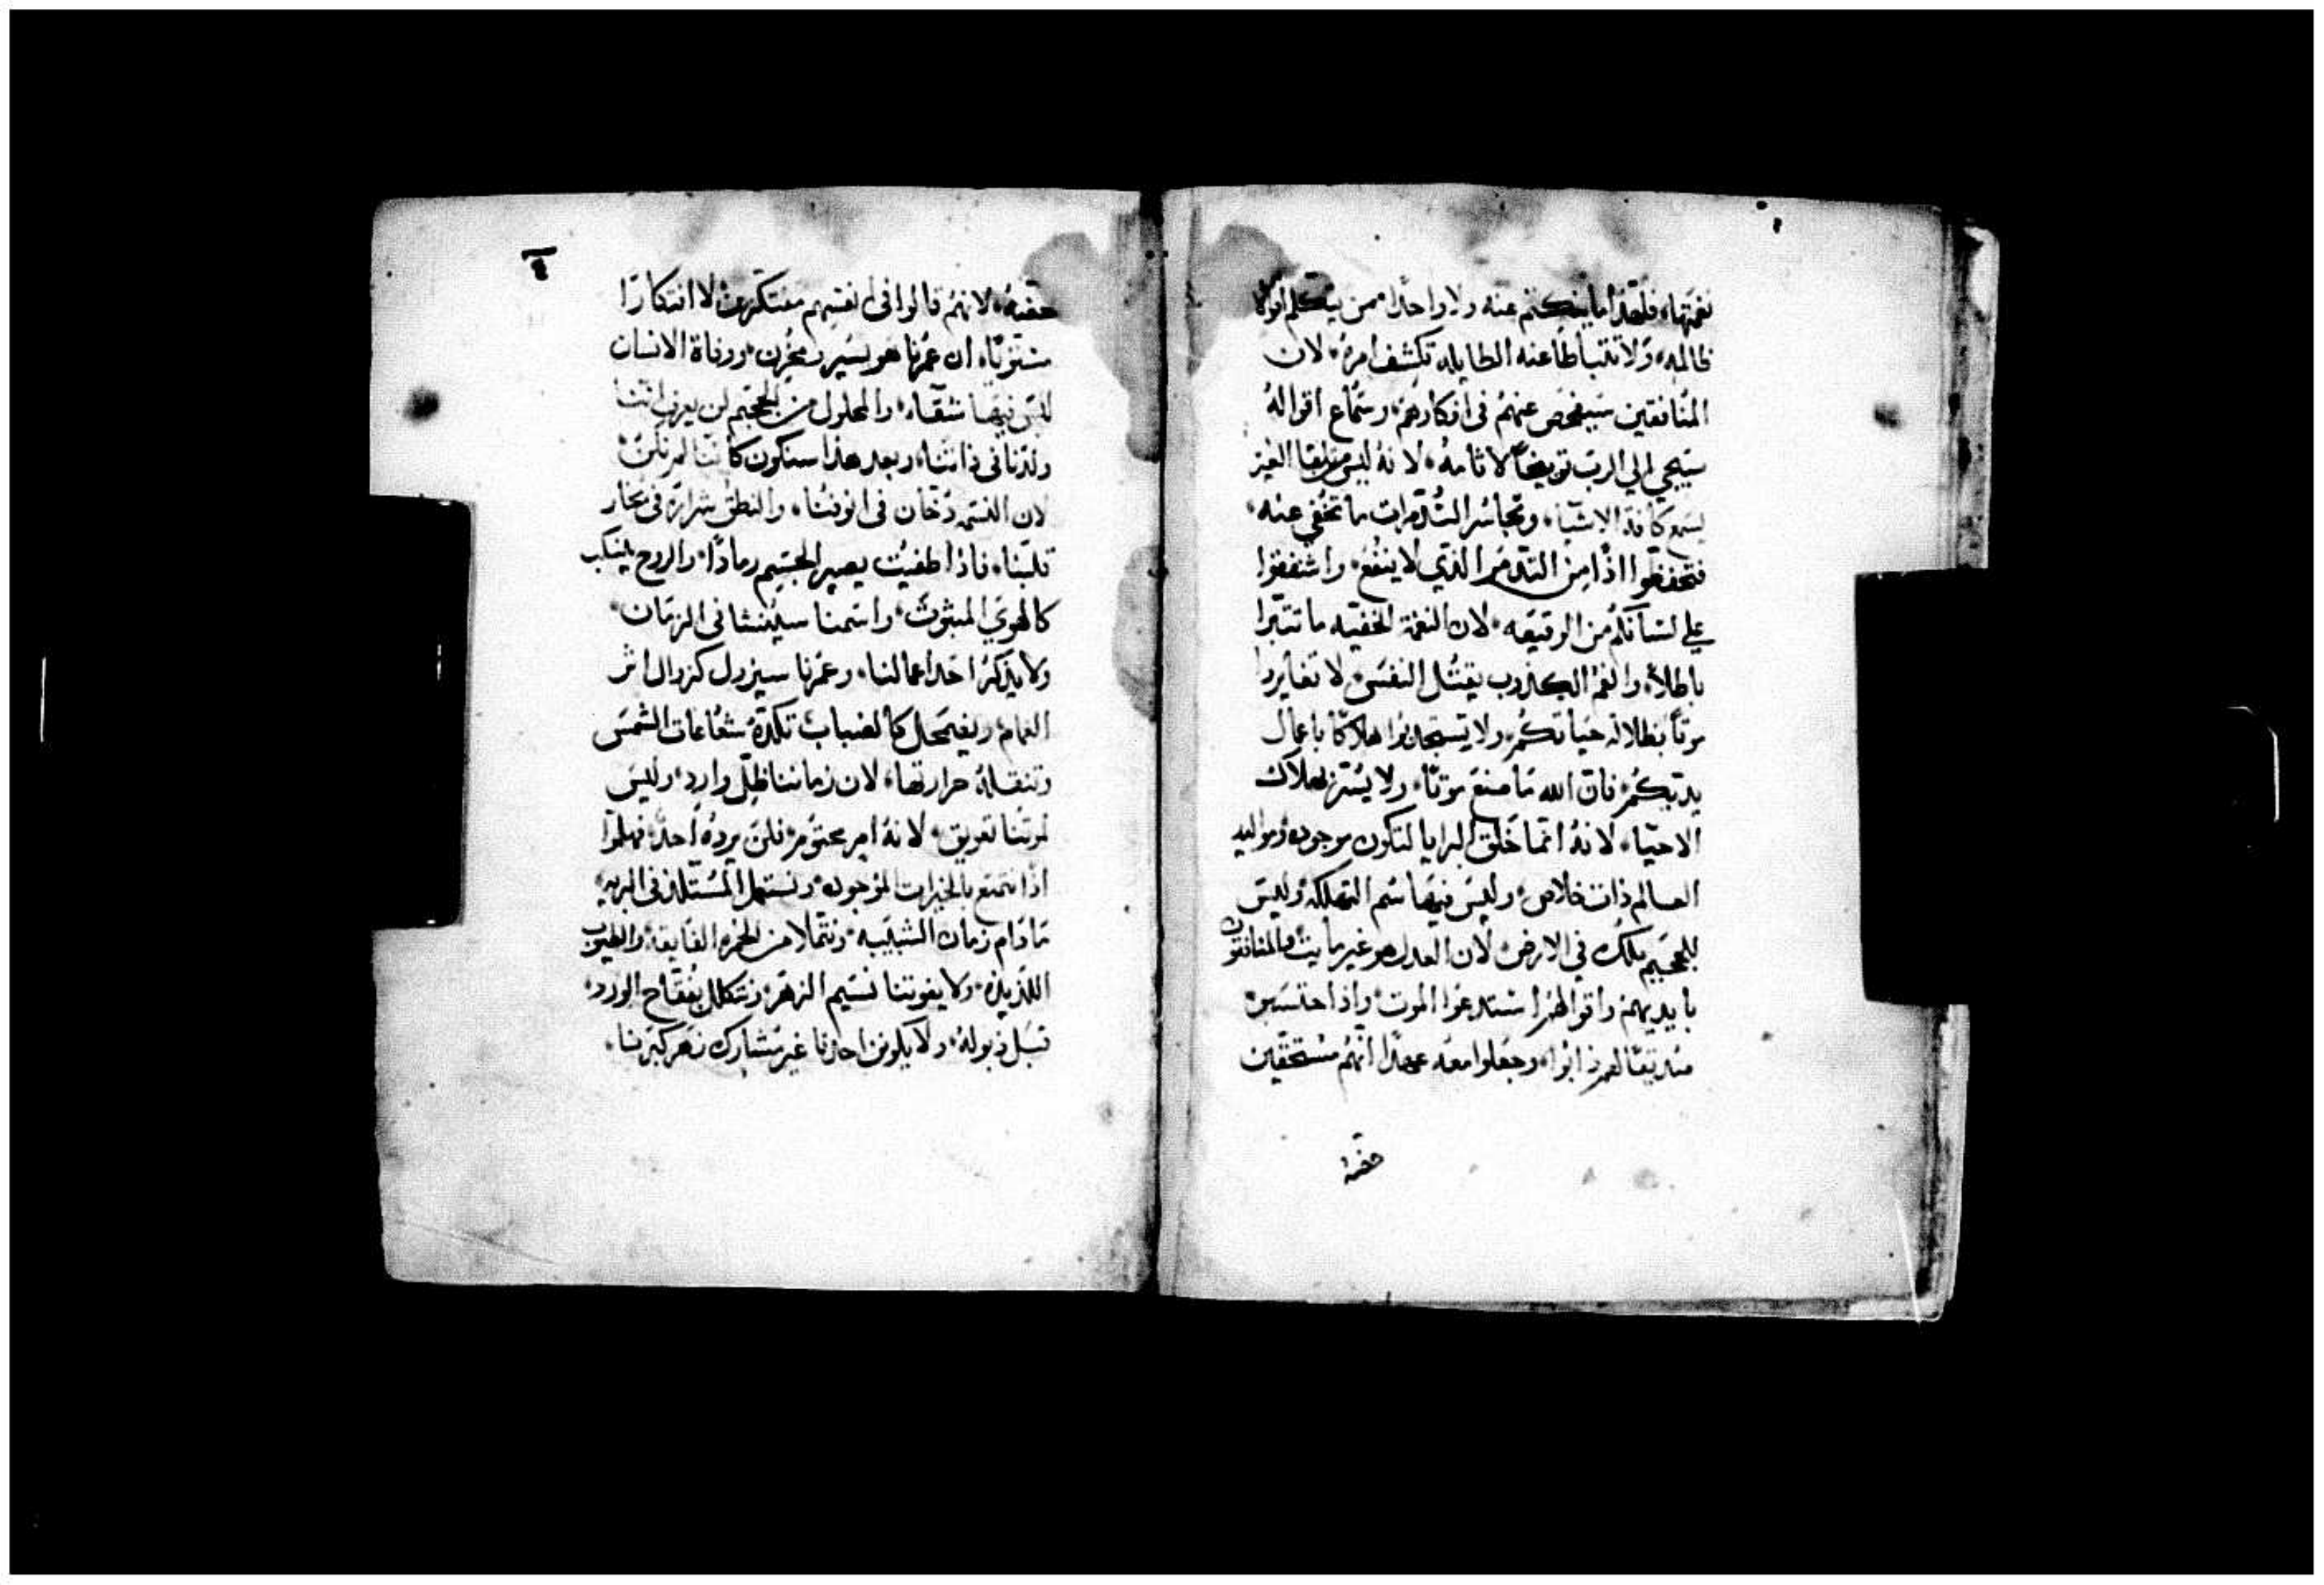 نغمتها، فلهذا ما ينكتم عنه ولا واحدًا ممن يتكلم اقوالا
ظالمه، ولا تتباطا عنه الطايله تكشف امره، لان
المنافقين سيفحص عنهم في افكارهم، وسماع اقواله
سيجي الي الرب توبيخًا لاثامه، لانه ليس الغيز
يسمع كافة الاشيا، وتجاسر التذمرات ما تخفي عنه،
فتحفظوا اذًا من التذمر الذي لا ينفع، واشفقوا
علي لسانكم من الوقيعه، لان النغمة الخفيه ما تتبرا
باطلاً، والفم الكذوب يقتل النفس، لا تغايروا
موتًا بظلالة حياتكم، ولا يستجذبوا هلاكًا باعمال
يديكم، فان الله ما صنع موتًا، ولا يسر بهلاك
الاحيا، لانه انما خلق البرايا لتكون موجوده ومواليد
العالم ذات خلاص، وليس فيها سم التهلكه، وليس
للجحيم ملك في الارض، لان العدل هو غير مايت، والمنافقون
بايديهم واقوالهم استدعوا الموت، واذا حتسبوه
صديقًا لهم ذابوا، وجعلوا معه عهدًا انهم مستحقين
حقبه

حقبه، لانهم قالوا في انفسهم مفتكرين لا افتكارًا
مستويًا، ان عمرنا هو يسير محزن، ووفاة الانسان
ليس فيها شفاء، والمحلول من الجحيم لن يعرف، اننا
ولدنا في ذاتنا، وبعد هذا سنكون كاننا لم نكن
لان النسمه دخان في انوفنا، والنطق شرارة في بخار
قلبنا، فاذا طفيت يصير الجسم رمادًا، والروح ينسكب
كالهوي المبثوث، واسمنا سينسا في الزمان،
ولا يذكر احد اعمالنا، وعمرنا سيزول كزوال اثر
الغمام، ويضمحل كالضباب تكده شعاعات الشمس
وتنقله حرارتها، لان زماننا ظل وارد، وليس
لموتنا تعويق، لانه امر محتوم، فلن يرده احد، فهلموا
اذًا نتمتع بالخيرات الموجوده، ونستعمل المستلذ في البريه،
ما دام زمان الشبيبه، ونتملا من الخمره الفايقه، والطيوب
اللذيذه، ولا يفوتنا نسيم الزهر، نتكلل بفقاح الورد،
قبل ذبوله، ولا يكونن احدنا غير مشارك زهر كبرنا،